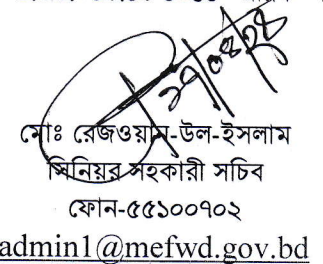 ২৭/০৪/২৫
মোঃ রেজওয়ান-উল-ইসলাম
সিনিয়র সহকারী সচিব
ফোন-৫৫১০০৭০২
admin1@mefwd.gov.bd